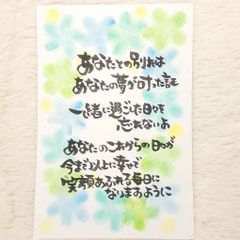 あなたとの別れは
あなたの夢が叶った証
一緒に過ごした日々を
忘れないよ
あなたのこれからの日々が
今まで以上に幸せで
笑顔あふれる毎日に
なりますように